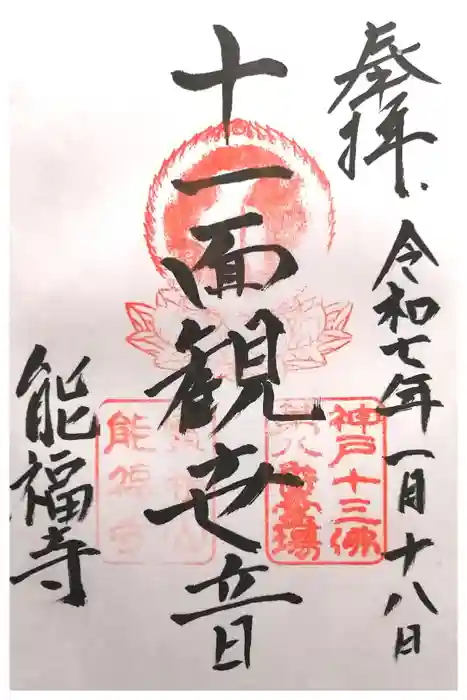 奉拝
令和七年一月十八日
十一面観世音
神戸十三佛
第八番霊場
能福寺
能福寺